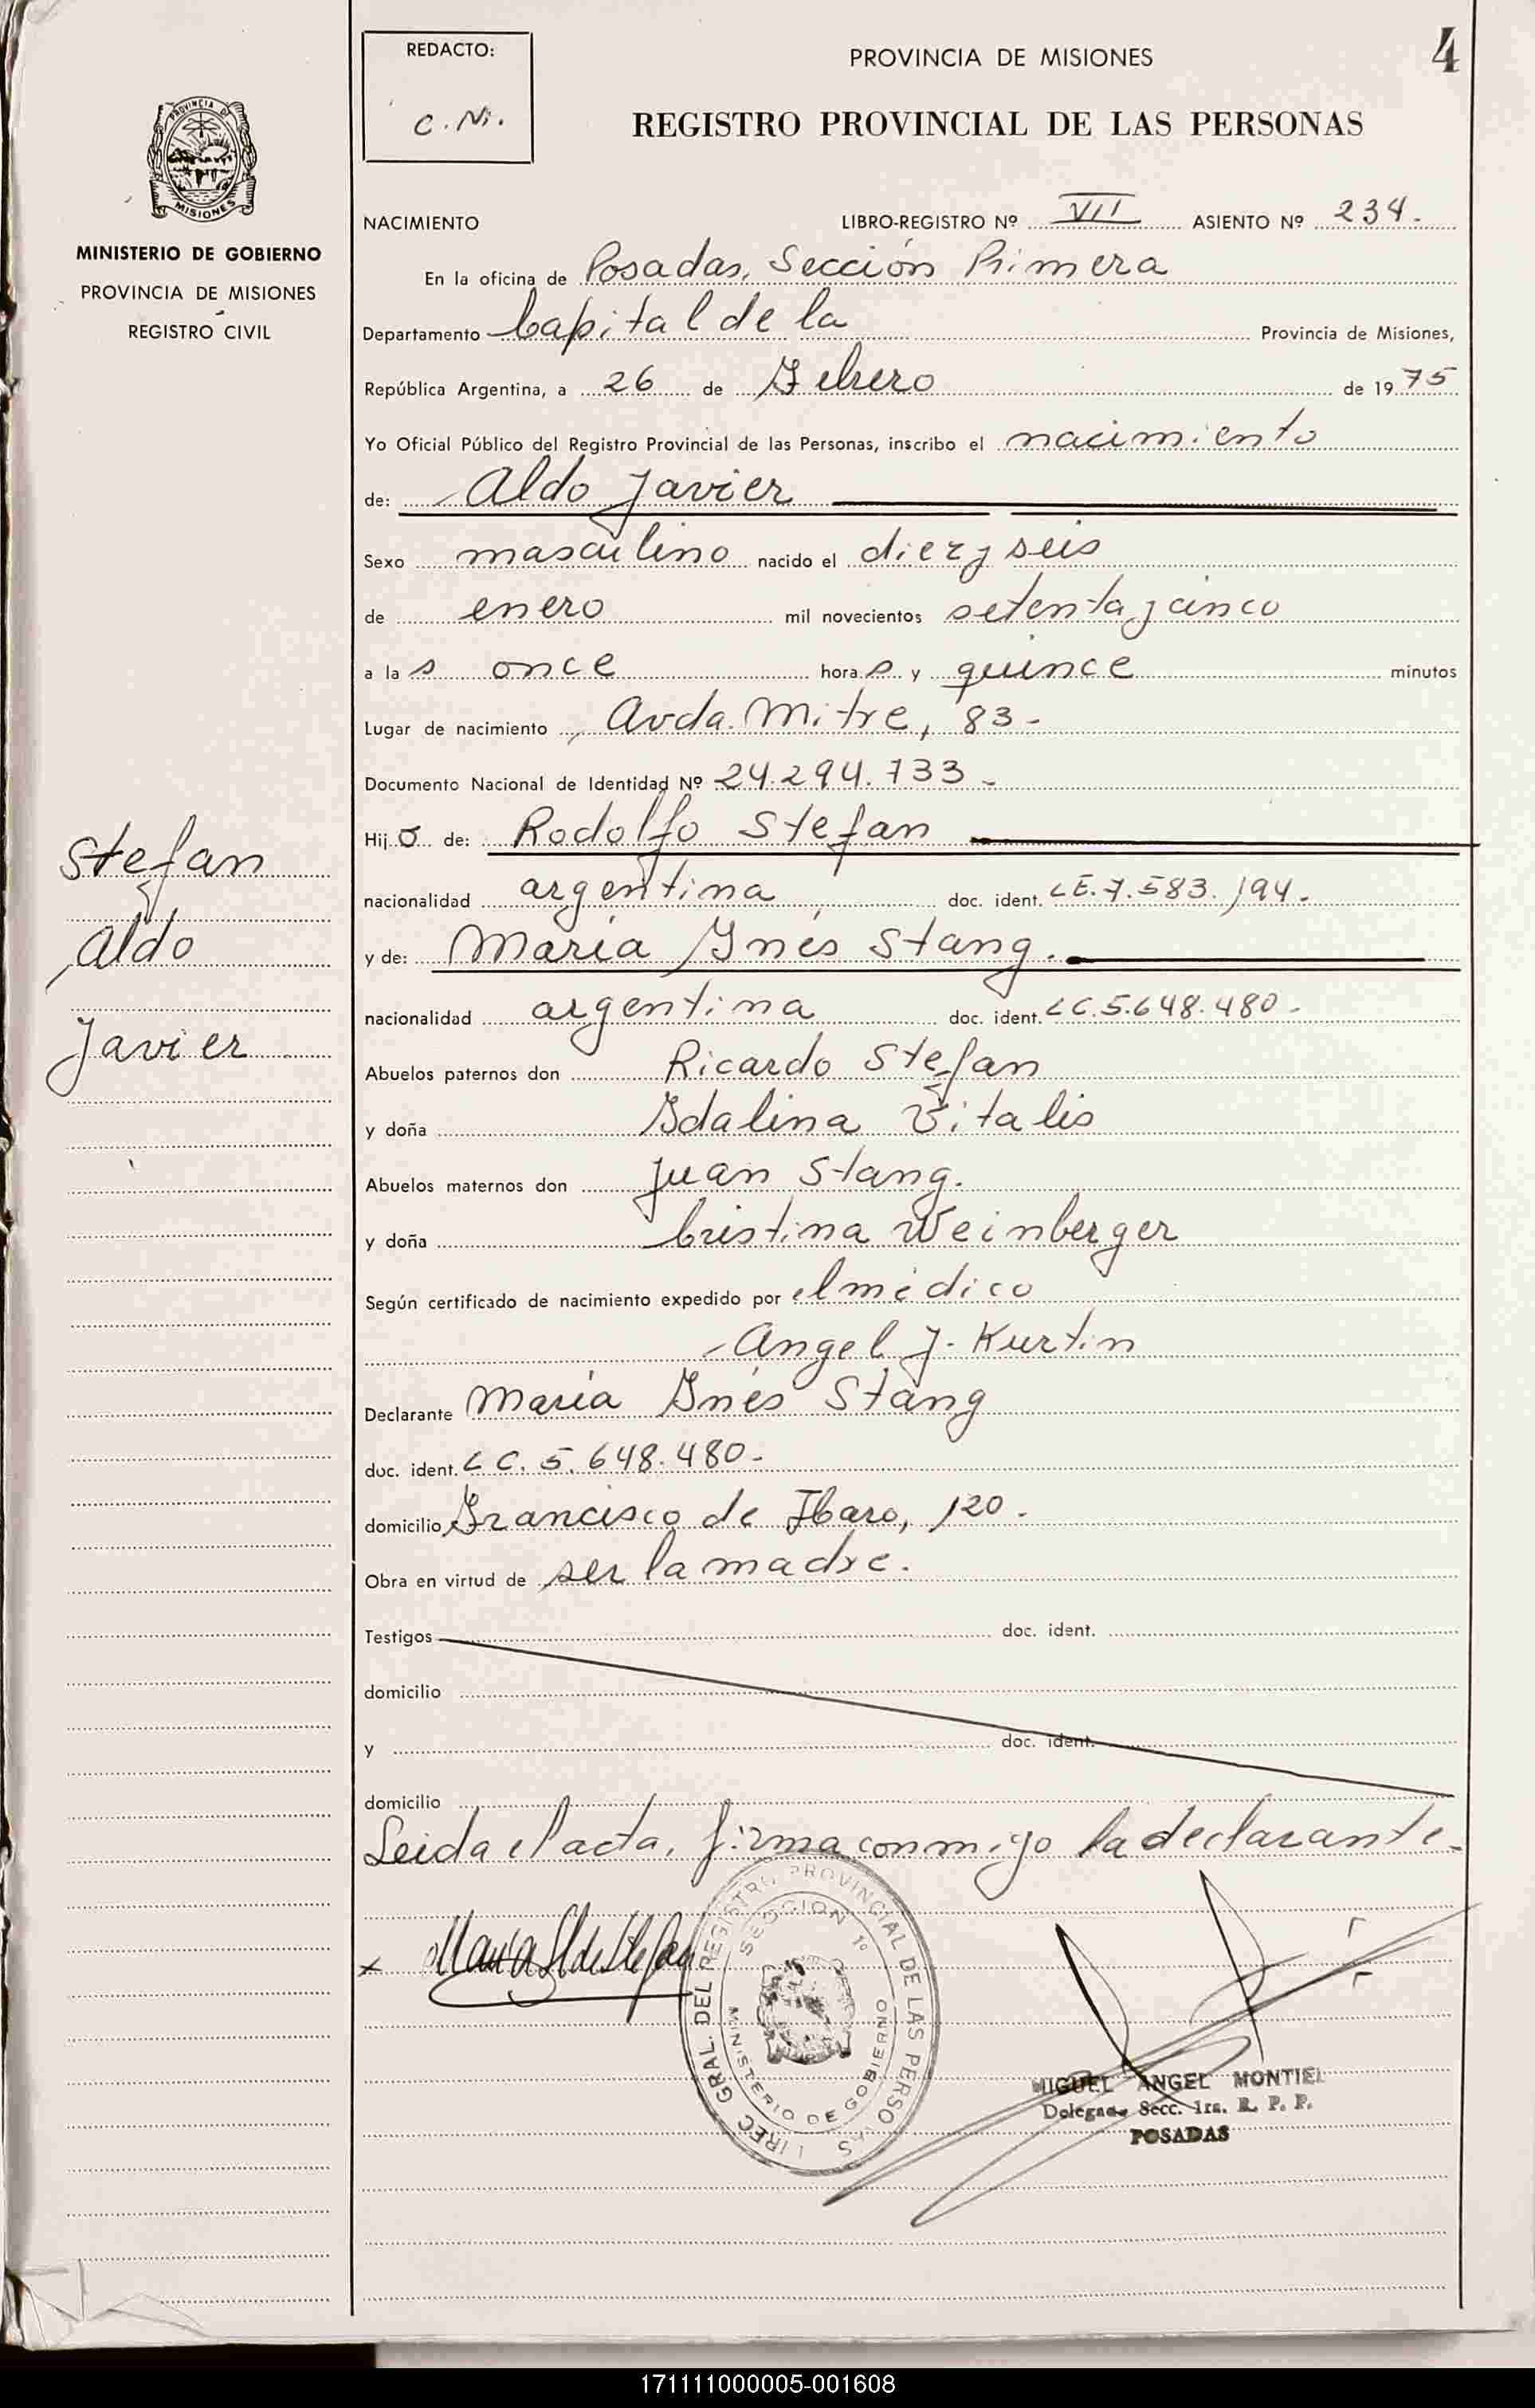 REDACTO:
C. Ni.
PROVINCIA DE MISIONES
4
REGISTRO PROVINCIAL DE LAS PERSONAS
PROVINCIA DE
MISIONES
MINISTERIO DE GOBIERNO
PROVINCIA DE MISIONES
REGISTRO CIVIL
NACIMIENTO LIBRO-REGISTRO Nº VII ASIENTO Nº 234.
En la oficina de Posadas, Sección Primera
Departamento Capital de la Provincia de Misiones,
República Argentina, a 26 de Febrero de 1975
Yo Oficial Público del Registro Provincial de las Personas, inscribo el nacimiento
de: Aldo Javier
Sexo masculino nacido el diez y seis
de enero mil novecientos setenta y cinco
a las once horas y quince minutos
Lugar de nacimiento Avda. Mitre, 83-
Documento Nacional de Identidad Nº 24.294.733-
Hijo de: Rodolfo Stefan
nacionalidad argentina doc. ident. LE. 7.583.194.
y de: María Inés Stang.
nacionalidad argentina doc. ident. LC. 5.648.480-
Abuelos paternos don Ricardo Stefan
y doña Idalina Vitalis
Abuelos maternos don Juan Stang.
y doña Cristina Weinberger
Según certificado de nacimiento expedido por el médico
Angel J. Kurtin
Declarante María Inés Stang
doc. ident. LC. 5.648.480-
domicilio Francisco de Haro, 120.
Obra en virtud de ser la madre.
Testigos doc. ident.
domicilio
y doc. ident.
domicilio
Leida el acta, firma conmigo la declarante-
Stefan
Aldo
Javier
x María S de Stefan
DIREC GRAL. DEL REGISTRO PROVINCIAL DE LAS PERSONAS
SECCION 1º
MINISTERIO DE GOBIERNO
MIGUEL ANGEL MONTIEL
Delegado Secc. 1ra. R. P. P.
POSADAS
171111000005-001608